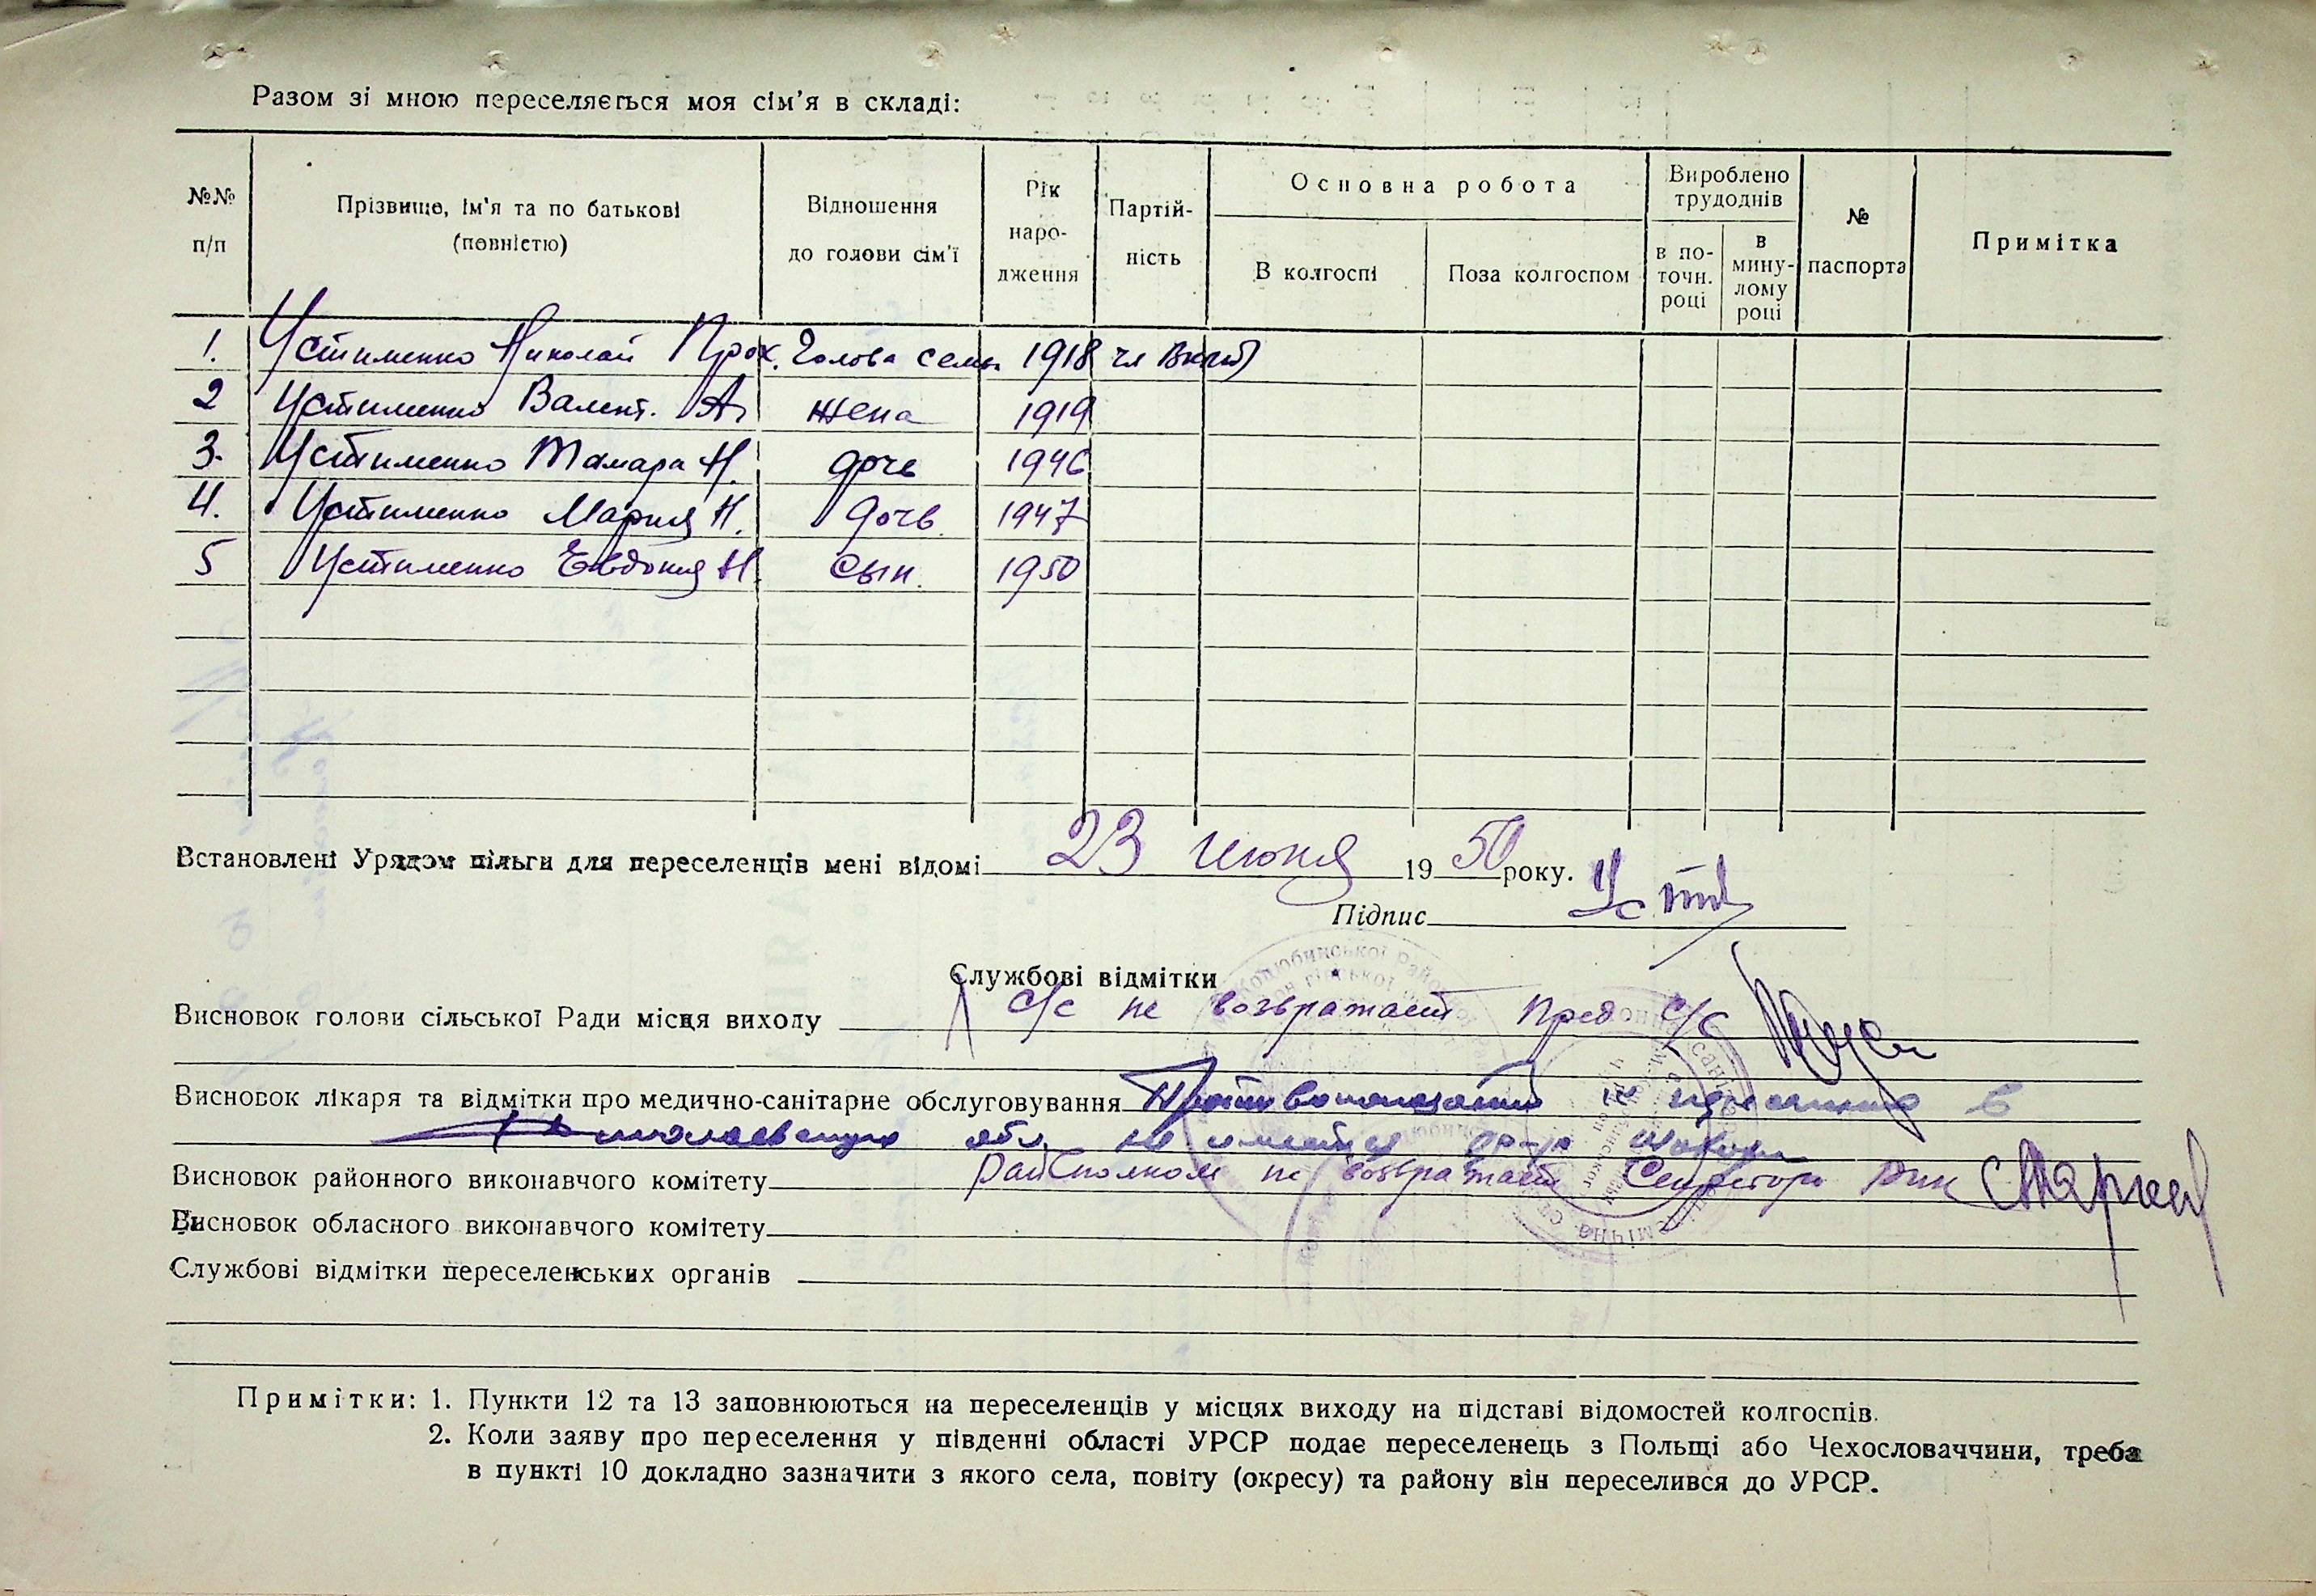 Разом зі мною переселяється моя сім'я в складі:
№№ п/п
Прізвище, ім'я та по батькові (повністю)
Відношення до голови сім'ї
Рік наро-дження
Партій-ність
Основна робота
В колгоспі
Поза колгоспом
Вироблено трудоднів
в по-точн. році
в мину-лому році
№ паспорта
Примітка
1. Устименко Николай Прох. Голова семьи 1918 чл ВКП(б)
2 Устименко Валент. А. жена 1919
3. Устименко Тамара Н. дочь 1946
4. Устименко Мария Н. дочь 1947
5 Устименко Евдокия Н. сын 1950
Встановлені Урядом пільги для переселенців мені відомі 23 июня 1950 року.
Підпис Уст
Службові відмітки
Висновок голови сільської Ради місця виходу с/с не возражает Пред с/с
Висновок лікаря та відмітки про медично-санітарне обслуговування Противопоказаний к переселению в
Николаевскую обл. не имеется
Висновок районного виконавчого комітету Райсполком не возражает Секретарь РИК
Висновок обласного виконавчого комітету
Службові відмітки переселенських органів
Примітки: 1. Пункти 12 та 13 заповнюються на переселенців у місцях виходу на підставі відомостей колгоспів.
2. Коли заяву про переселення у південні області УРСР подає переселенець з Польщі або Чехословаччини, треба
в пункті 10 докладно зазначити з якого села, повіту (округу) та району він переселився до УРСР.